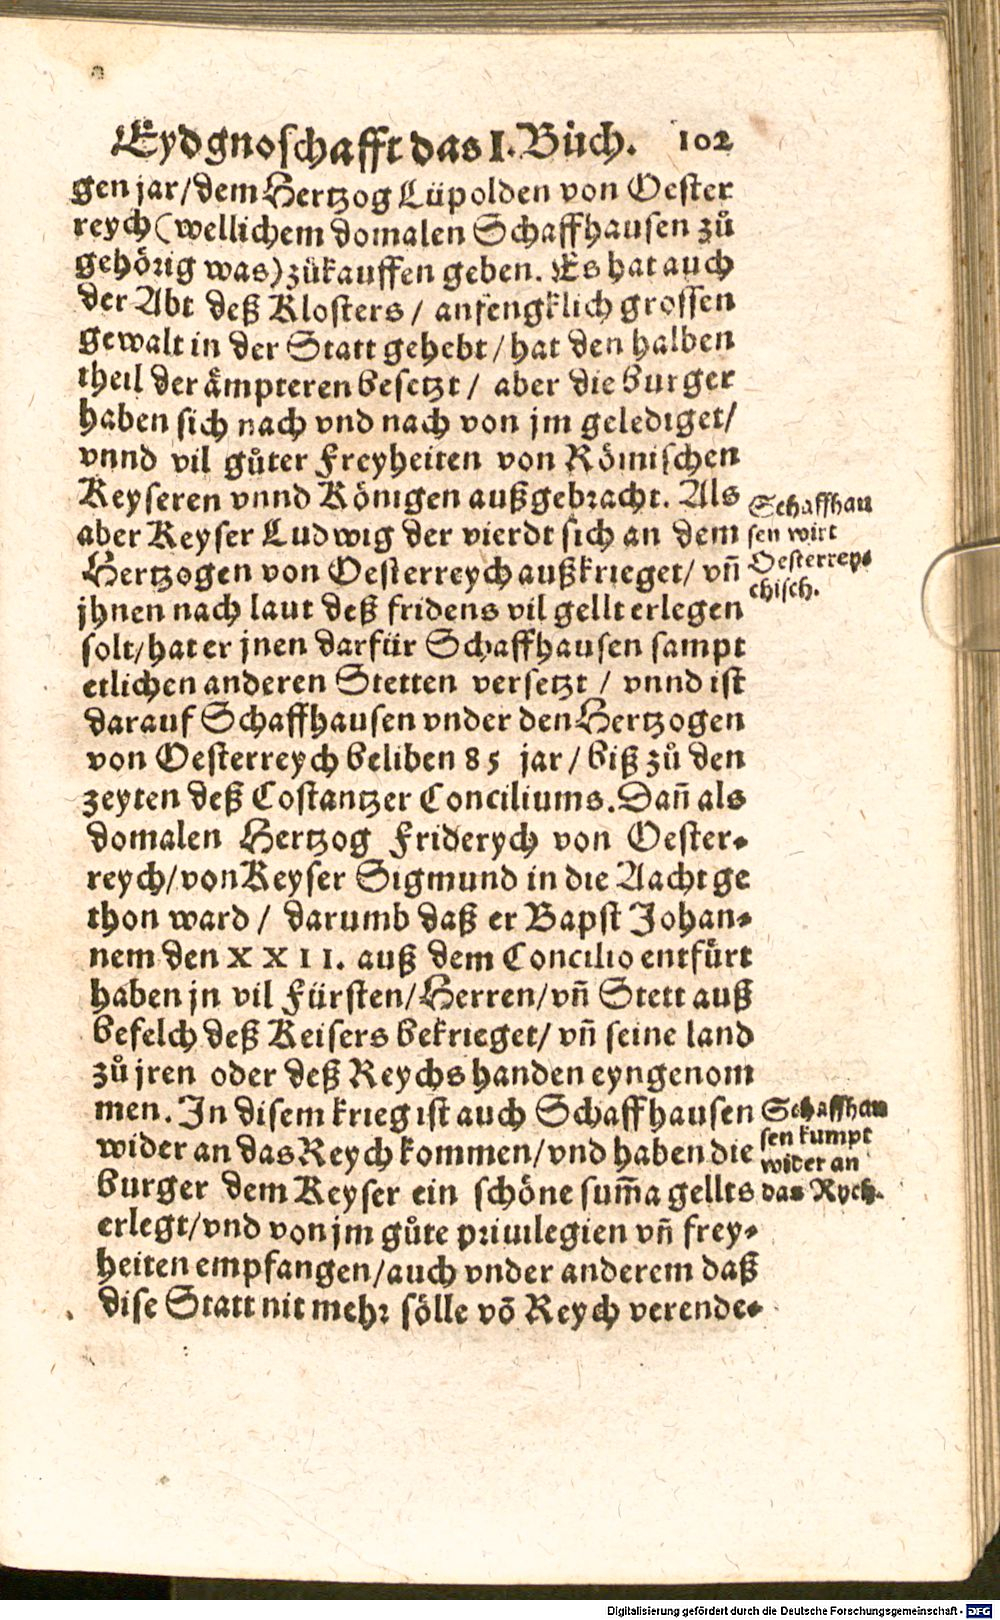 Eydgnoschafft das I. Bůch. 102
gen jar/dem Hertzog Lüpolden von Oester
reych (wellichem domalen Schaffhausen zů
gehörig was) zůkauffen geben. Es hat auch
der Abt deß Klosters / anfengklich grossen
gewalt in der Statt gehebt / hat den halben
theil der ämpteren besetzt / aber die burger
haben sich nach vnd nach von jm gelediget/
vnnd vil gůter Freyheiten von Römischen
Keyseren vnnd Königen außgebracht. Als
aber Keyser Ludwig der vierdt sich an dem
Hertzogen von Oesterreych außkrieget/ vñ
jhnen nach laut deß fridens vil gellt erlegen
solt/hat er jnen darfür Schaffhausen sampt
etlichen anderen Stetten versetzt / vnnd ist
darauf Schaffhausen vnder den Hertzogen
von Oesterreych beliben 85 jar / biß zů den
zeyten deß Costantzer Conciliums. Dañ als
domalen Hertzog Friderych von Oester-
reych/von Keyser Sigmund in die Aacht ge
thon ward / darumb daß er Bapst Johan-
nem den XXII. auß dem Concilio entfürt
haben jn vil Fürsten/Herren/vñ Stett auß
befelch deß Keisers bekrieget/ vñ seine land
zů jren oder deß Reychs handen eyngenom
men. In disem krieg ist auch Schaffhausen
wider an das Reych kommen/vnd haben die
burger dem Keyser ein schöne sum̃a gellts
erlegt/vnd von jm gůte priuilegien vñ frey-
heiten empfangen/auch vnder anderem daß
dise Statt nit mehr sölle võ Reych verende-
Schaffhau
sen wirt
Oesterrey-
chisch.
Schaffhau
sen kumpt
wider an
das Rych.
Digitalisierung gefördert durch die Deutsche Forschungsgemeinschaft - DFG